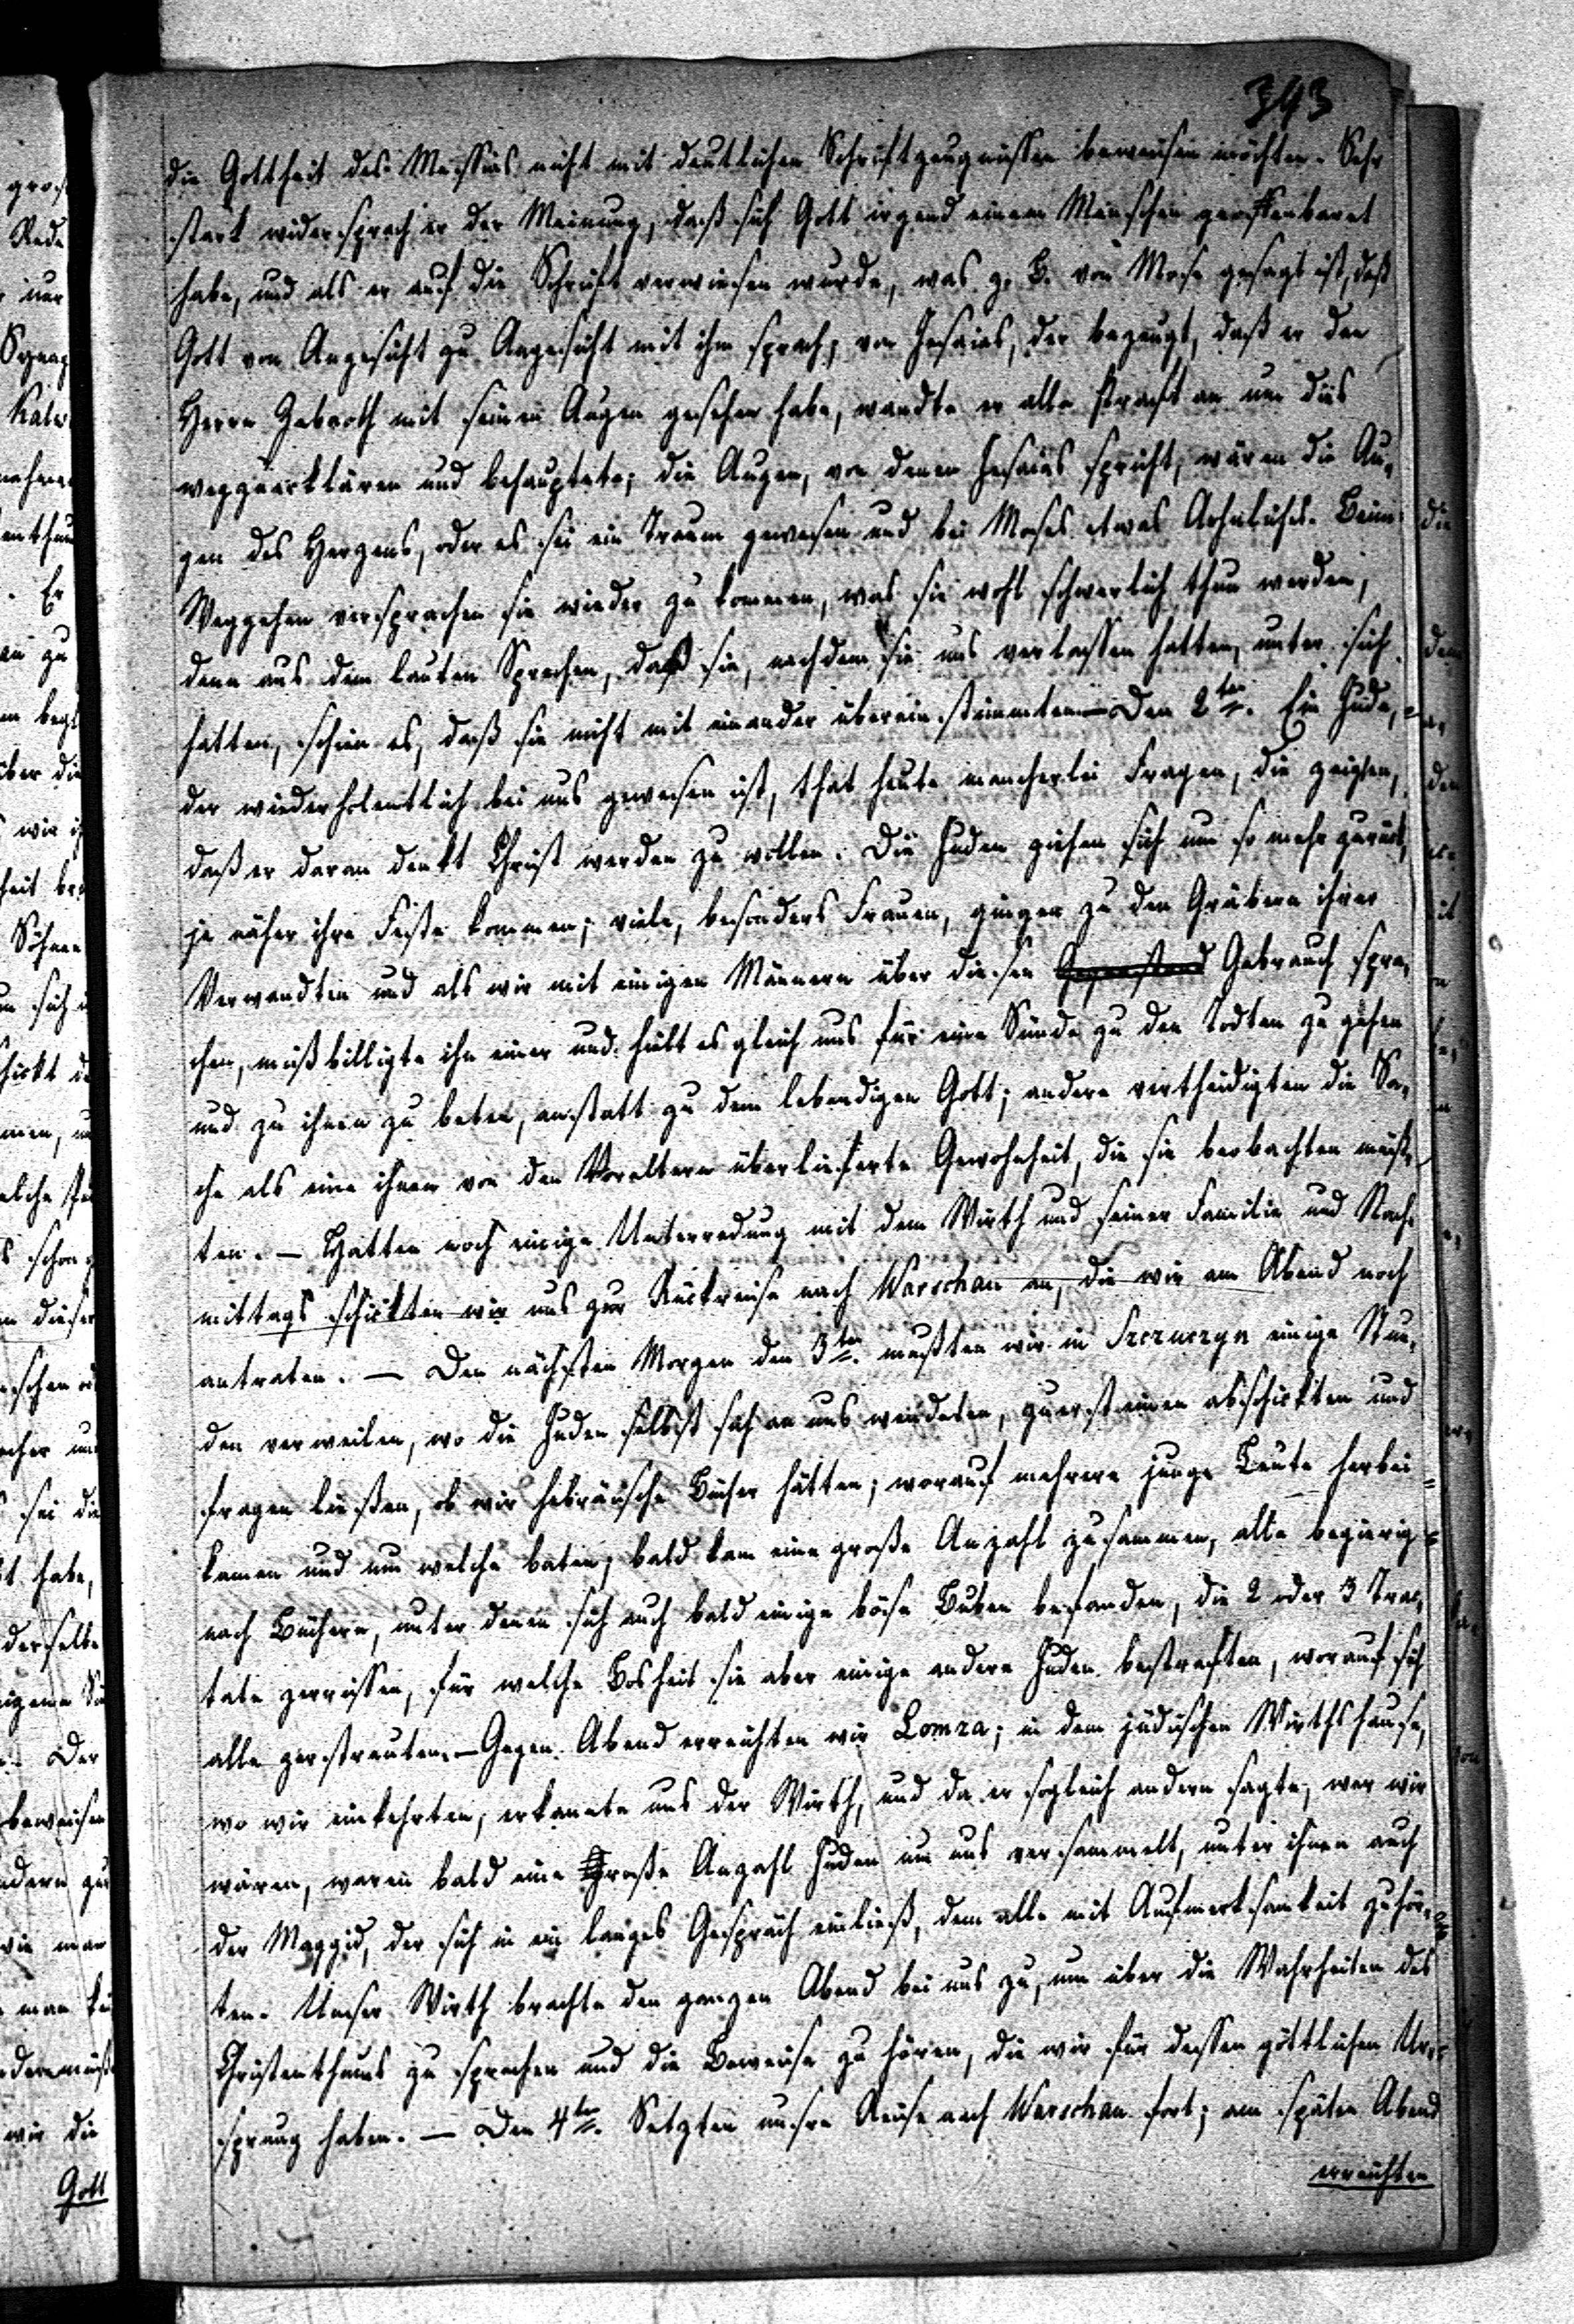 343
die Gottheit des Messias nicht mit deutlichen Schriftzeugnissen beweisen möchten. Sehr
stark widersprach er der Meinung, daß sich Gott irgend einem Menschen geoffenbaret
habe, und als er auf die Schrift verwiesen wurde, was z. B. von Mose gesagt ist, daß
Gott von Angesicht zu Angesicht mit ihm sprach, von Jesaias, der bezeugt, daß er den
Herrn Zebaoth mit seinen Augen gesehen habe, wandte er alle Kraft an um dies
wegzuerklären und behauptete; die Augen, von denen Jesaias spricht, wären die Au-
gen des Herzens, oder es sei ein Traum gewesen und bei Moses etwas Aehnliches. Beim
Weggehen versprachen sie wieder zu kommen, was sie wohl schwerlich thun werden,
denn aus dem lauten Sprechen, daß sie, nachdem sie uns verlassen hatten, unter sich
hatten, schien es, daß sie nicht mit einander übereinstimmten — Den 2ten. Ein Jude,
der wiederholentlich bei uns gewesen ist, that heute mancherlei Fragen, die zeigten,
daß er daran denkt Christ werden zu wollen. Die Juden ziehen sich um so mehr zurück,
je näher ihre Feste kommen; viele, besonders Frauen, gingen zu den Gräbern ihrer
Verwandten und als wir mit einigen Männern über diesen Gegenstand Gebrauch spra-
chen, mißbilligte ihn einer und hielt es gleich uns für eine Sünde zu den Todten zu gehen
und zu ihnen zu beten, anstatt zu dem lebendigen Gott; andere vertheidigten die Sa-
che als eine ihnen von den Voreltern überlieferte Gewohnheit, die sie beobachten müß-
ten. — Hatten noch einige Unterredung mit dem Wirth und seiner Familie und Nach-
mittags schickten wir uns zur Rückreise nach Warschau an, die wir am Abend noch
antraten. — Den nächsten Morgen den 3ten. mußten wir in Szczuczyn einige Stun-
den verweilen, wo die Juden selbst sich an uns wendeten, zuerst einen abschickten und
fragen ließen, ob wir hebräische Bücher hätten; worauf mehrere junge Leute herbei-
kamen und um welche baten; bald kam eine große Anzahl zusammen, alle begierig
nach Büchern, unter denen sich auch bald einige böse Buben befanden, die 2 oder 3 Trac-
tate zerrissen, für welche Bosheit sie aber einige andere Juden bestraften, worauf sich
alle zerstreuten. — Gegen Abend erreichten wir Lomza; in dem jüdischen Wirthshause,
wo wir einkehrten, erkannte uns der Wirth, und da er sogleich andern sagte, wer wir
wären, waren bald eine große Anzahl Juden um uns versammelt, unter ihnen auch
der Maggid, der sich in ein langes Gespräch einließ, dem alle mit Aufmerksamkeit zuhör-
ten. Unser Wirth brachte den ganzen Abend bei uns zu, um über die Wahrheiten des
Christenthums zu sprechen und die Beweise zu hören, die wir für dessen göttlichen Ur-
sprung haben. — Den 4ten. Setzten unsre Reise nach Warschau fort; am späten Abend
erreichten